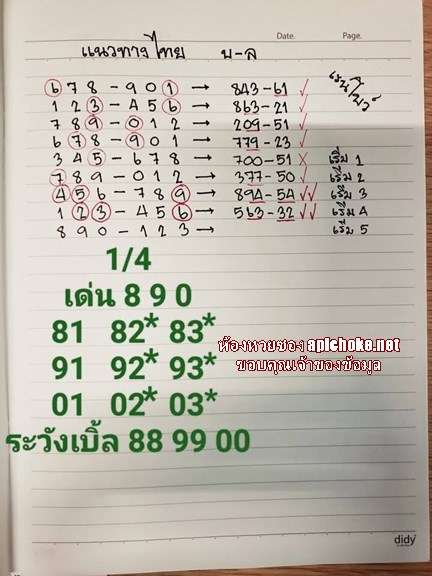 Date. Page.
แนวทางไทย บ-ล
678-901 → 843-61 ✓
123-456 → 863-21 ✓
789-012 → 209-51 ✓
678-901 → 779-23 ✓
345-678 → 700-51 × เริ่ม 1
789-012 → 377-50 ✓ เริ่ม 2
456-789 → 894-54 ✓✓ เริ่ม 3
123-456 → 563-32 ✓✓ เริ่ม 4
890-123 → เริ่ม 5
1/4
เด่น 8 9 0
81 82* 83*
ห้องหวยของ apichoke.net
91 92* 93*
ขอบคุณเจ้าของข้อมูล
01 02* 03*
ระวังเบิ้ล 88 99 00
didy